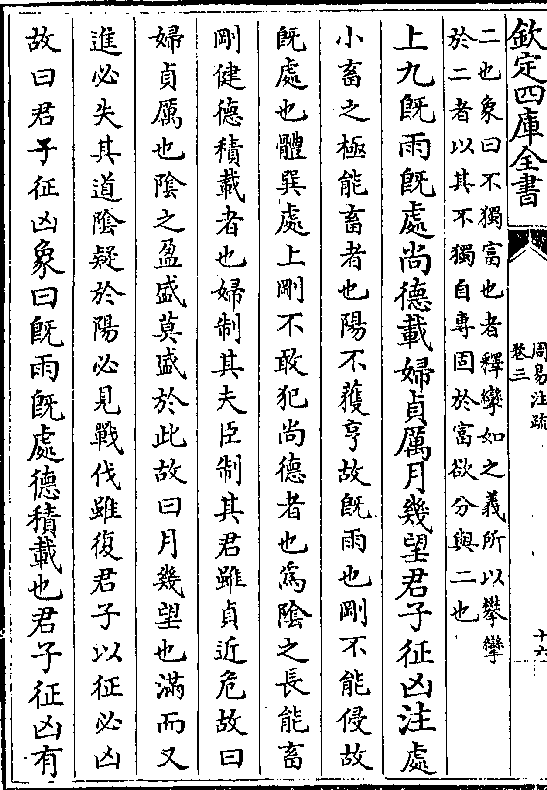 欽定四庫全書
周易注疏
卷三
十六
二也象曰不獨富也者釋攣如之義所以攀攣
於二者以其不獨自專固於富欲分與二也
上九旣雨旣處尚德載婦貞厲月幾望君子征凶注處
小畜之極能畜者也陽不獲亨故旣雨也剛不能侵故
旣處也體巽處上剛不敢犯尚德者也爲隂之長能畜
剛健德積載者也婦制其夫臣制其君雖貞近危故曰
婦貞厲也隂之盈盛莫盛於此故曰月幾望也滿而又
進必失其道隂疑於陽必見戰伐雖復君子以征必凶
故曰君子征凶象曰旣雨旣處德積載也君子征凶有